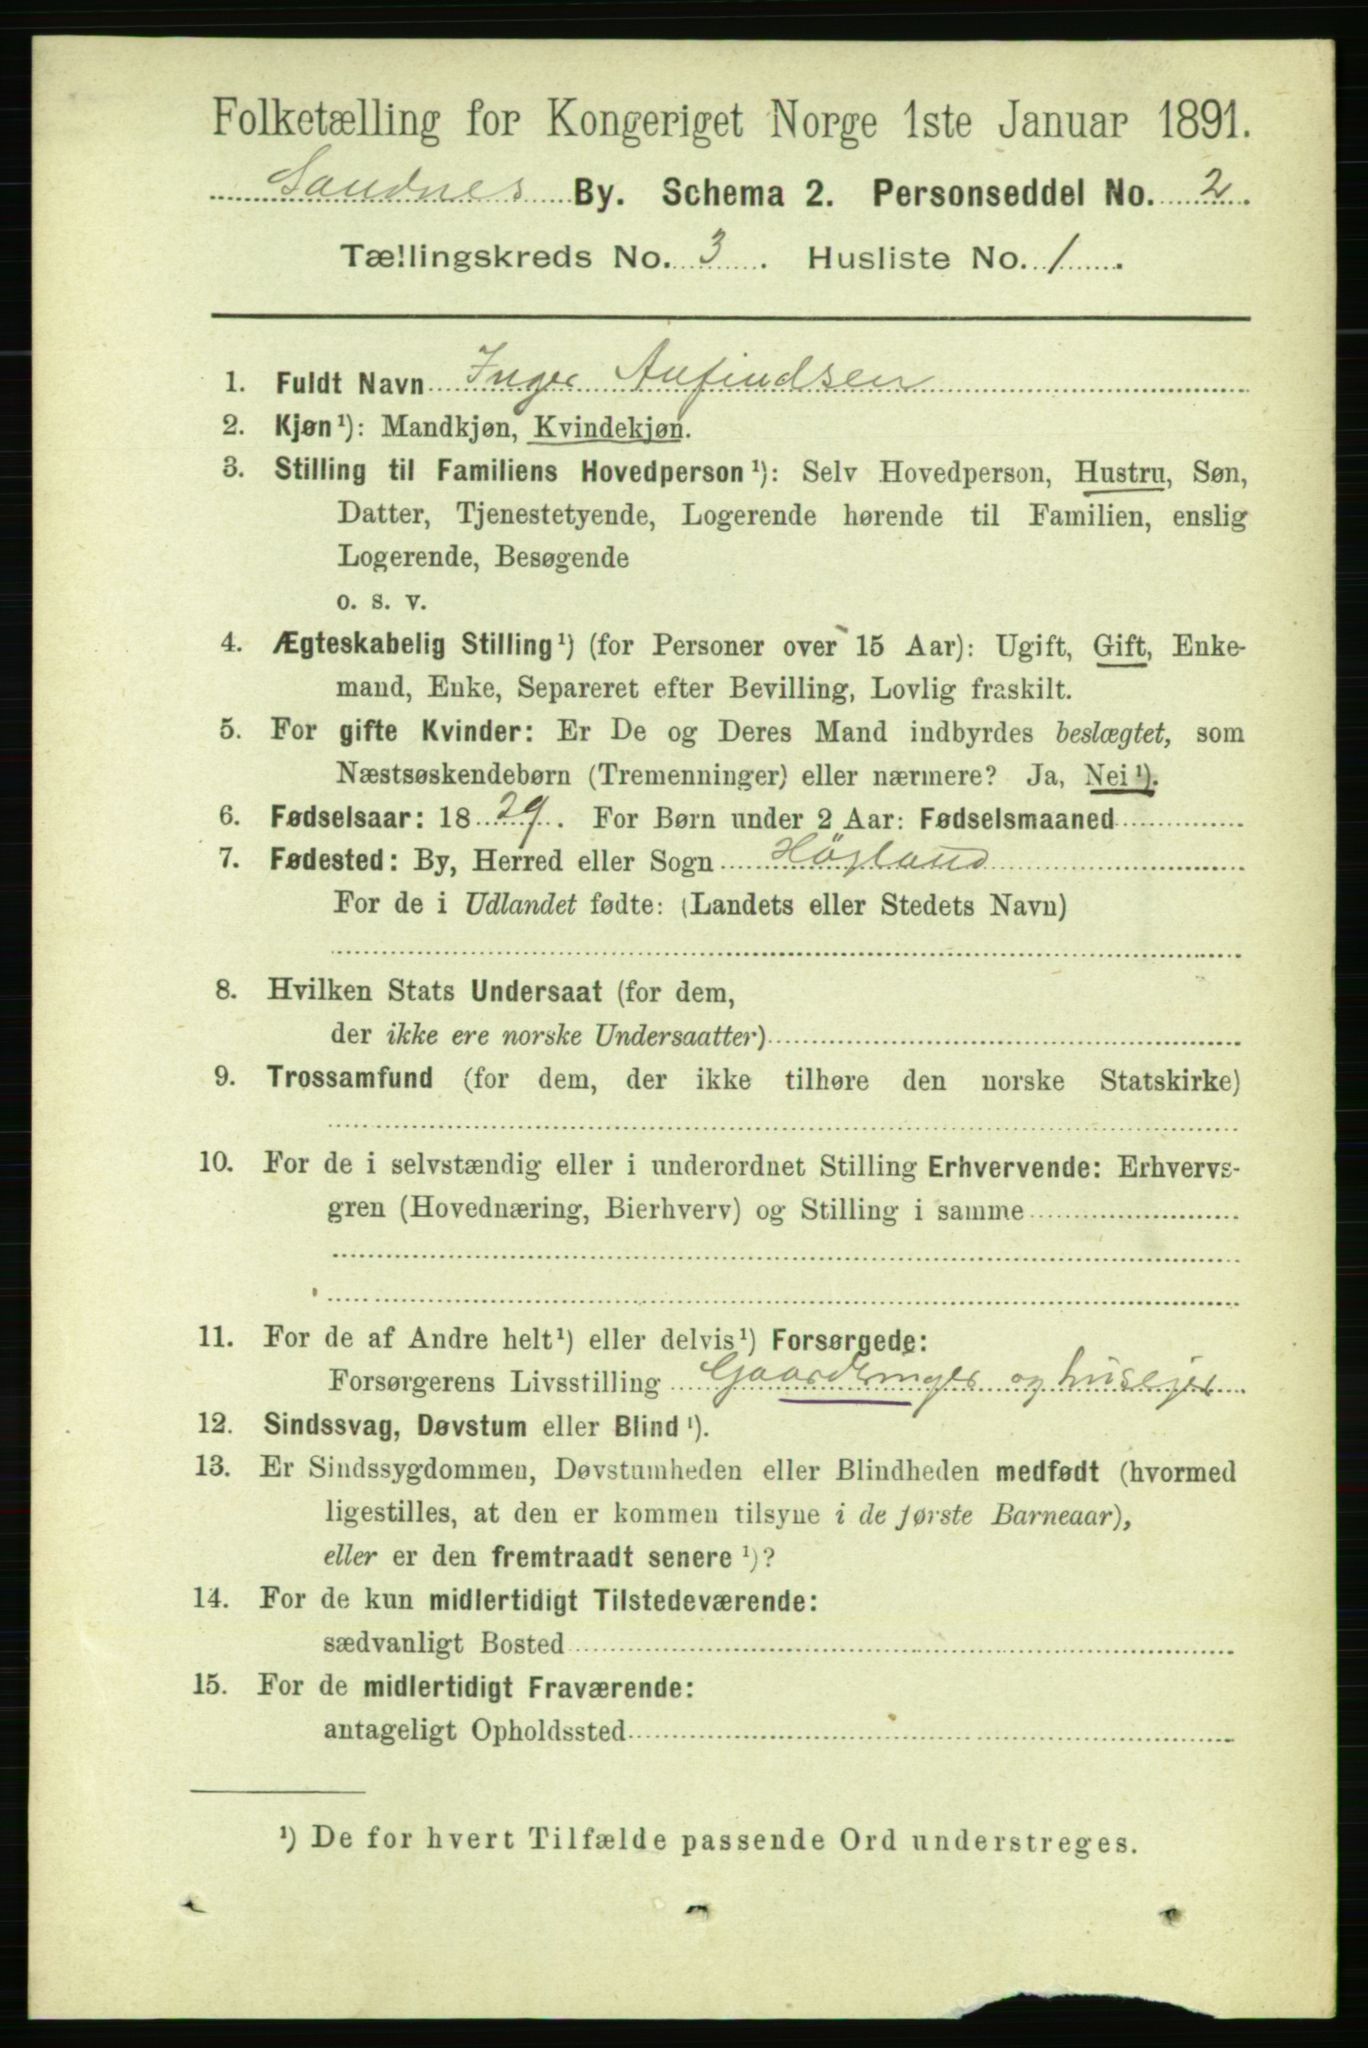 Folketælling for Kongeriget Norge 1ste Januar 1891.
Sandnes By. Schema 2. Personseddel No. 2.
Tællingskreds No. 3. Husliste No. 1.
1. Fuldt Navn Inger Anfindsen
2. Kjøn¹): Mandkjøn, Kvindekjøn.
3. Stilling til Familiens Hovedperson¹): Selv Hovedperson, Hustru, Søn,
Datter, Tjenestetyende, Logerende hørende til Familien, enslig
Logerende, Besøgende
o. s. v.
4. Ægteskabelig Stilling¹) (for Personer over 15 Aar): Ugift, Gift, Enke-
mand, Enke, Separeret efter Bevilling, Lovlig fraskilt.
5. For gifte Kvinder: Er De og Deres Mand indbyrdes beslægtet, som
Næstsøskendebørn (Tremenninger) eller nærmere? Ja, Nei¹).
6. Fødselsaar: 1829. For Børn under 2 Aar: Fødselsmaaned
7. Fødested: By, Herred eller Sogn Högland
For de i Udlandet fødte: (Landets eller Stedets Navn)
8. Hvilken Stats Undersaat (for dem,
der ikke ere norske Undersaatter)
9. Trossamfund (for dem, der ikke tilhøre den norske Statskirke)
10. For de i selvstændig eller i underordnet Stilling Erhvervende: Erhvervs-
gren (Hovednæring, Bierhverv) og Stilling i samme
11. For de af Andre helt¹) eller delvis¹) Forsørgede:
Forsørgerens Livsstilling og husejer
12. Sindssvag, Døvstum eller Blind¹).
13. Er Sindssygdommen, Døvstumheden eller Blindheden medfødt (hvormed
ligestilles, at den er kommen tilsyne i de første Barneaar),
eller er den fremtraadt senere¹)?
14. For de kun midlertidigt Tilstedeværende:
sædvanligt Bosted
15. For de midlertidigt Fraværende:
antageligt Opholdssted
¹) De for hvert Tilfælde passende Ord understreges.